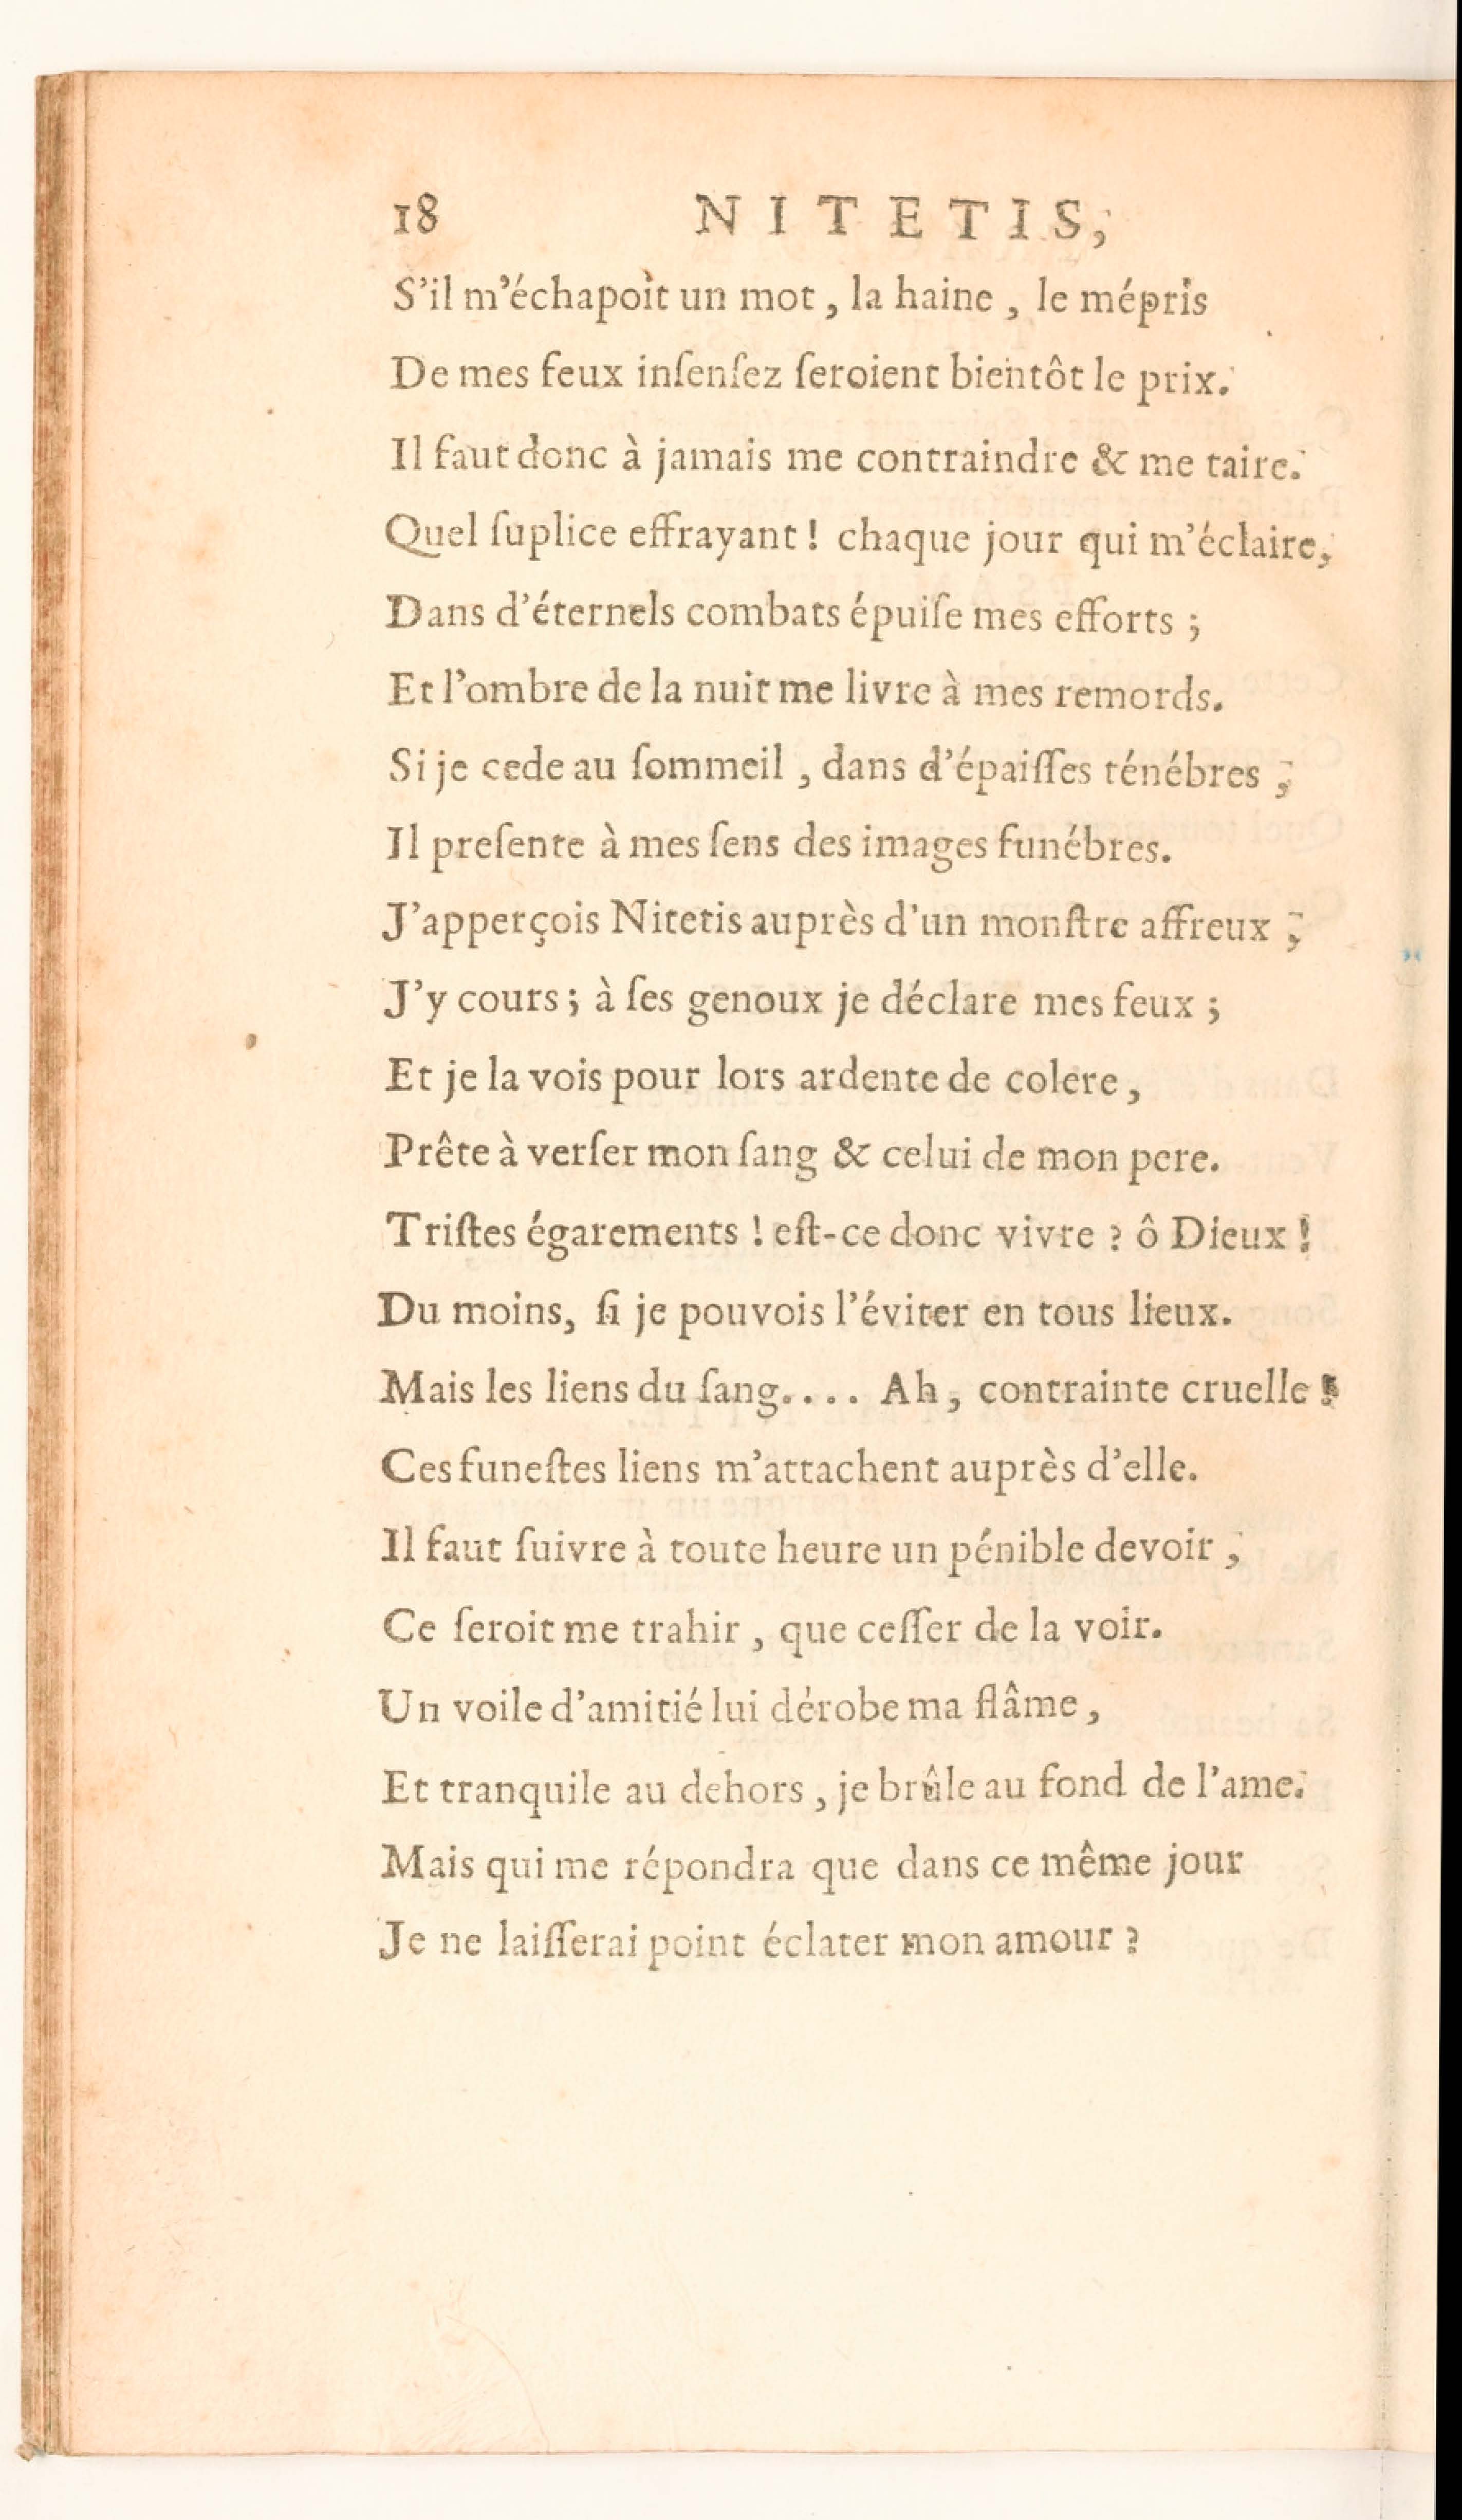 18 NITETIS,
S'il m'échapoit un mot, la haine, le mépris
De mes feux inſenſez ſeroient bientôt le prix.
Il faut donc à jamais me contraindre & me taire.
Quel ſuplice effrayant ! chaque jour qui m'éclaire,
Dans d'éternels combats épuiſe mes efforts ;
Et l'ombre de la nuit me livre à mes remords.
Si je cede au ſommeil, dans d'épaiſſes ténébres,
Il preſente à mes ſens des images funébres.
J'apperçois Nitetis auprès d'un monſtre affreux ;
J'y cours ; à ſes genoux je déclare mes feux ;
Et je la vois pour lors ardente de colere,
Prête à verſer mon ſang & celui de mon pere.
Triſtes égarements ! eſt-ce donc vivre ? ô Dieux !
Du moins, ſi je pouvois l'éviter en tous lieux.
Mais les liens du ſang.... Ah, contrainte cruelle !
Ces funeſtes liens m'attachent auprès d'elle.
Il faut ſuivre à toute heure un pénible devoir,
Ce ſeroit me trahir, que ceſſer de la voir.
Un voile d'amitié lui dérobe ma flâme,
Et tranquile au dehors, je brûle au fond de l'ame.
Mais qui me répondra que dans ce même jour
Je ne laiſſerai point éclater mon amour ?